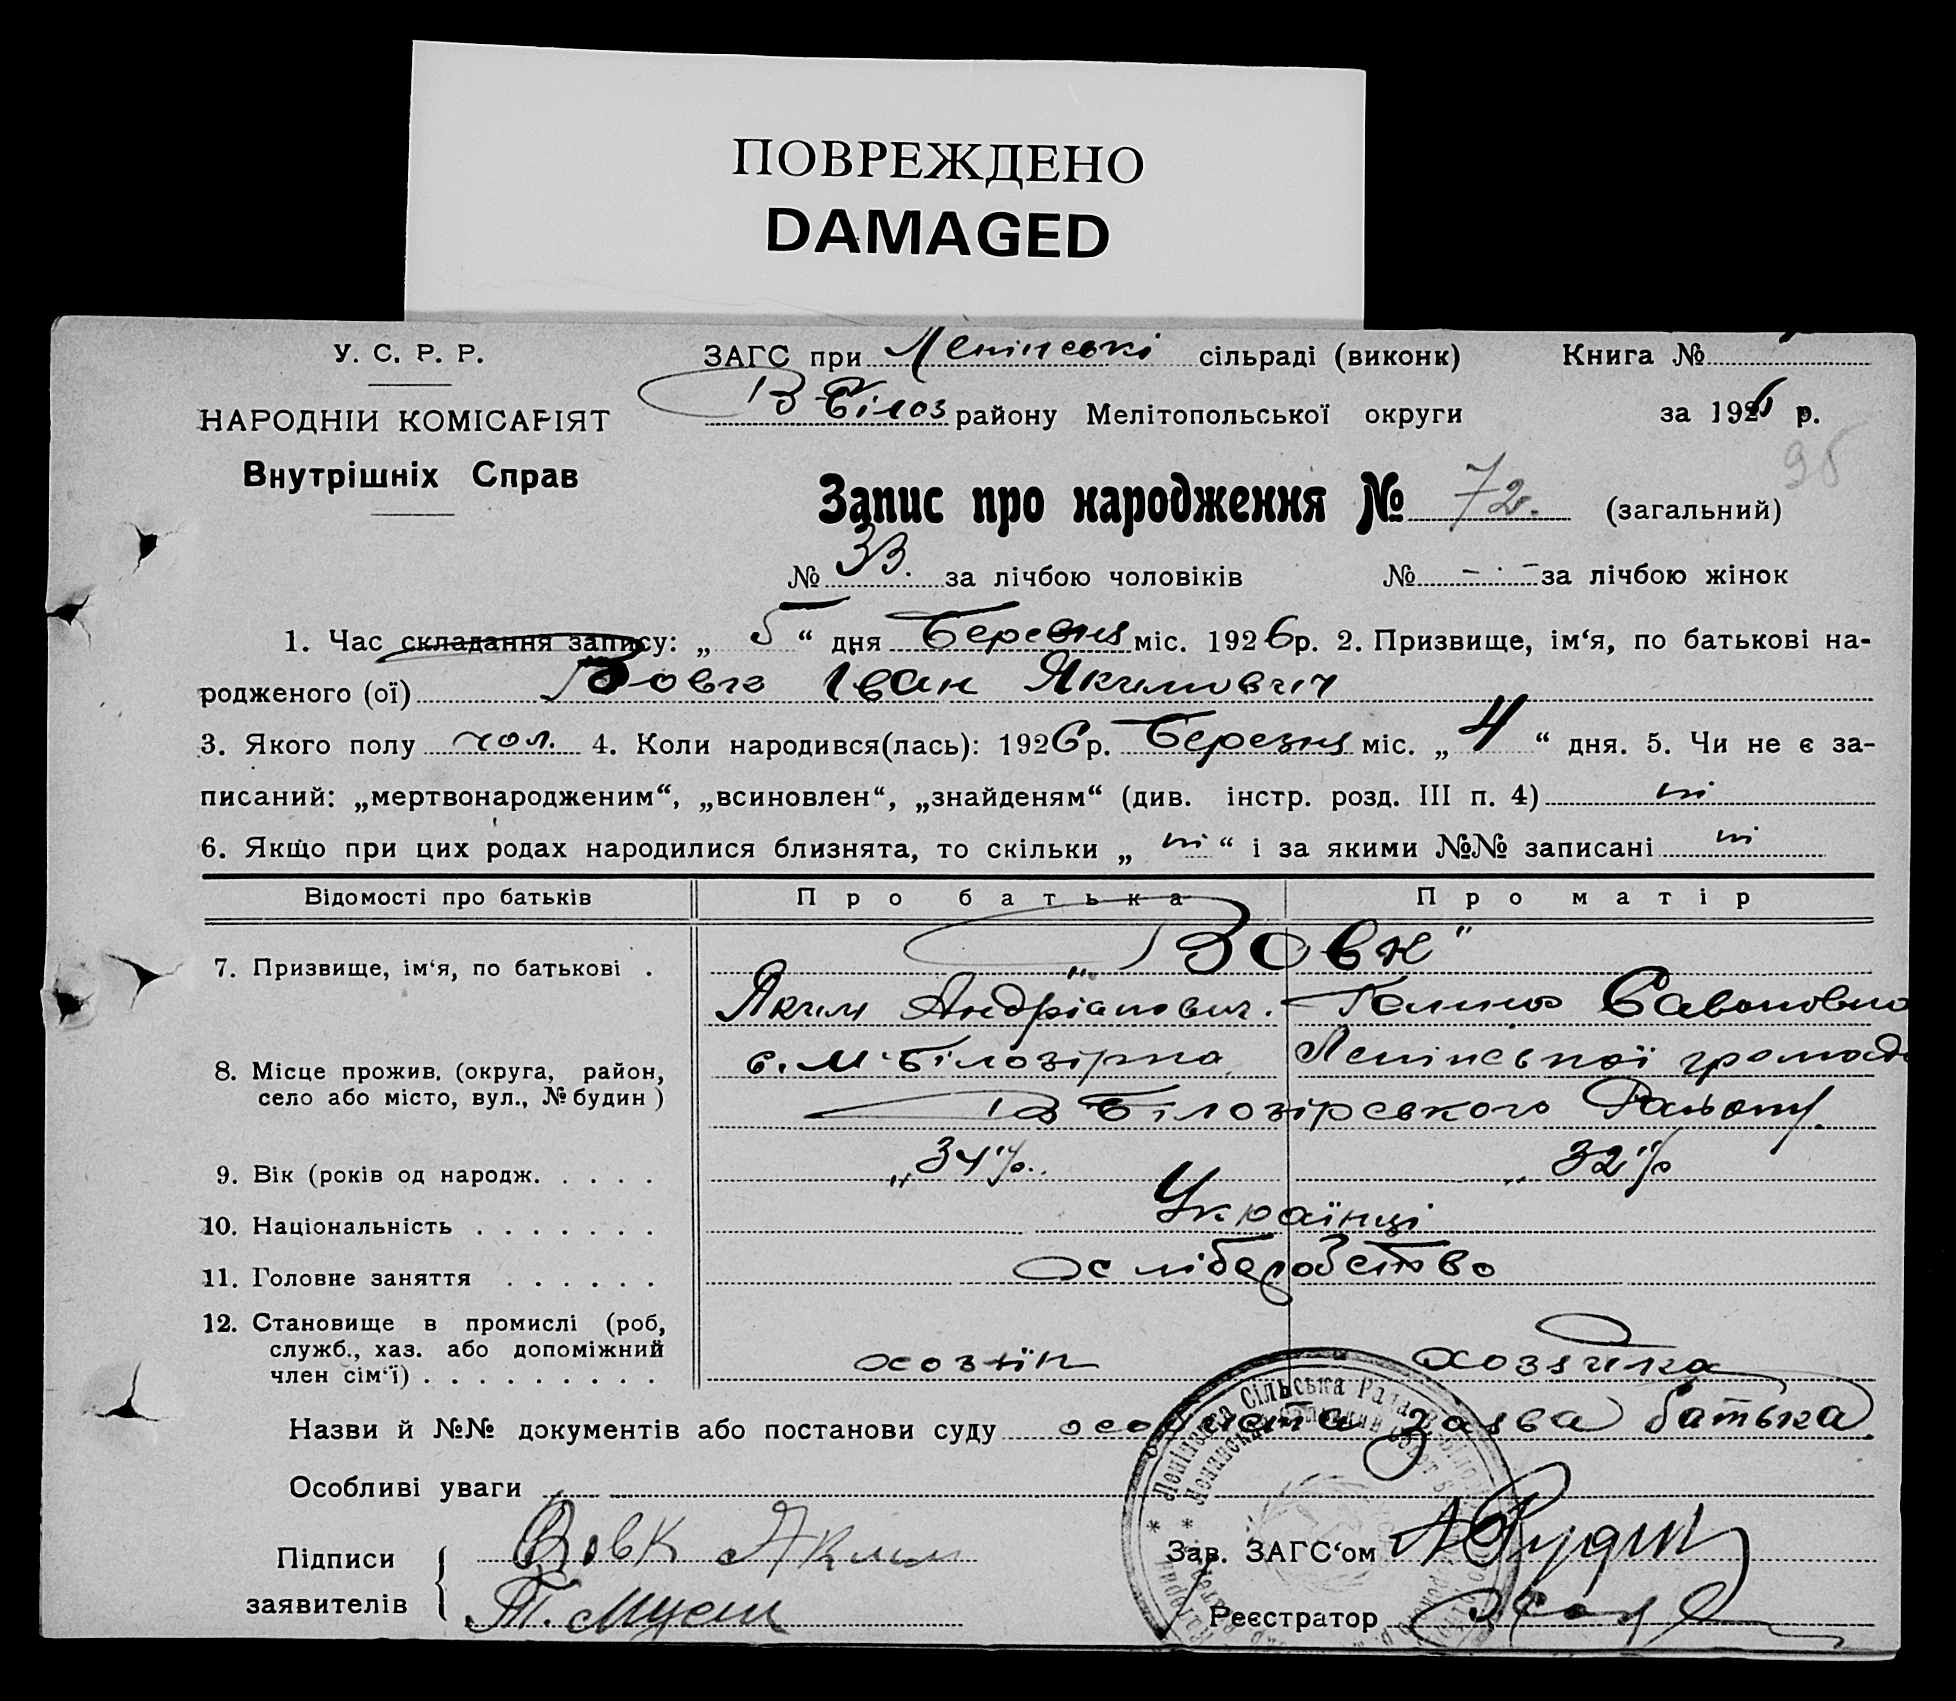 ПОВРЕЖДЕНО
DAMAGED
У. С. Р. Р.
НАРОДНІЙ КОМІСАРІЯТ
Внутрішніх Справ
ЗАГС при Ленінські сільраді (виконк) Книга №
В Білоз району Мелітопольської округи за 1926 р.
96
Запис про народження № 72. (загальний)
№ 33. за лічбою чоловіків № - · - за лічбою жінок
1. Час складання запису: „ 5 “ дня Березня міс. 1926 р. 2. Призвище, ім‘я, по батькові на-
родженого (ої) Вовк Іван Якимович
3. Якого полу чол. 4. Коли народився(лась): 1926 р. Березня міс. „ 4 “ дня. 5. Чи не є за-
писаний: „мертвонародженим“, „всиновлен“, „знайденям“ (див. інстр. розд. III п. 4) ні
6. Якщо при цих родах народилися близнята, то скільки „ ні “ і за якими №№ записані ні
Відомості про батьків Про батька Про матір
7. Призвище, ім‘я, по батькові . „Вовк"
Яким Андріанович. Галина Савоновна
8. Місце прожив. (округа, район, село або місто, вул., № будин) с. М-Білозірка Ленінської громади
В Білозірського Району.
9. Вік (років од народж. . . . . „34" р. „32" р
10. Національність . . . . . . . Українці
11. Головне заняття . . . . . . хліборобство
12. Становище в промислі (роб, служб., хаз. або допоміжний член сім‘ї) . . . . . . . . . хозяїн хозяйка
Назви й №№ документів або постанови суду особиста заява батька
Особливі уваги
Підписи заявителів { Вовк Яким
Т. Мусии
Зав. ЗАГС‘ом
Реєстратор
Ленінська Сільська Рада